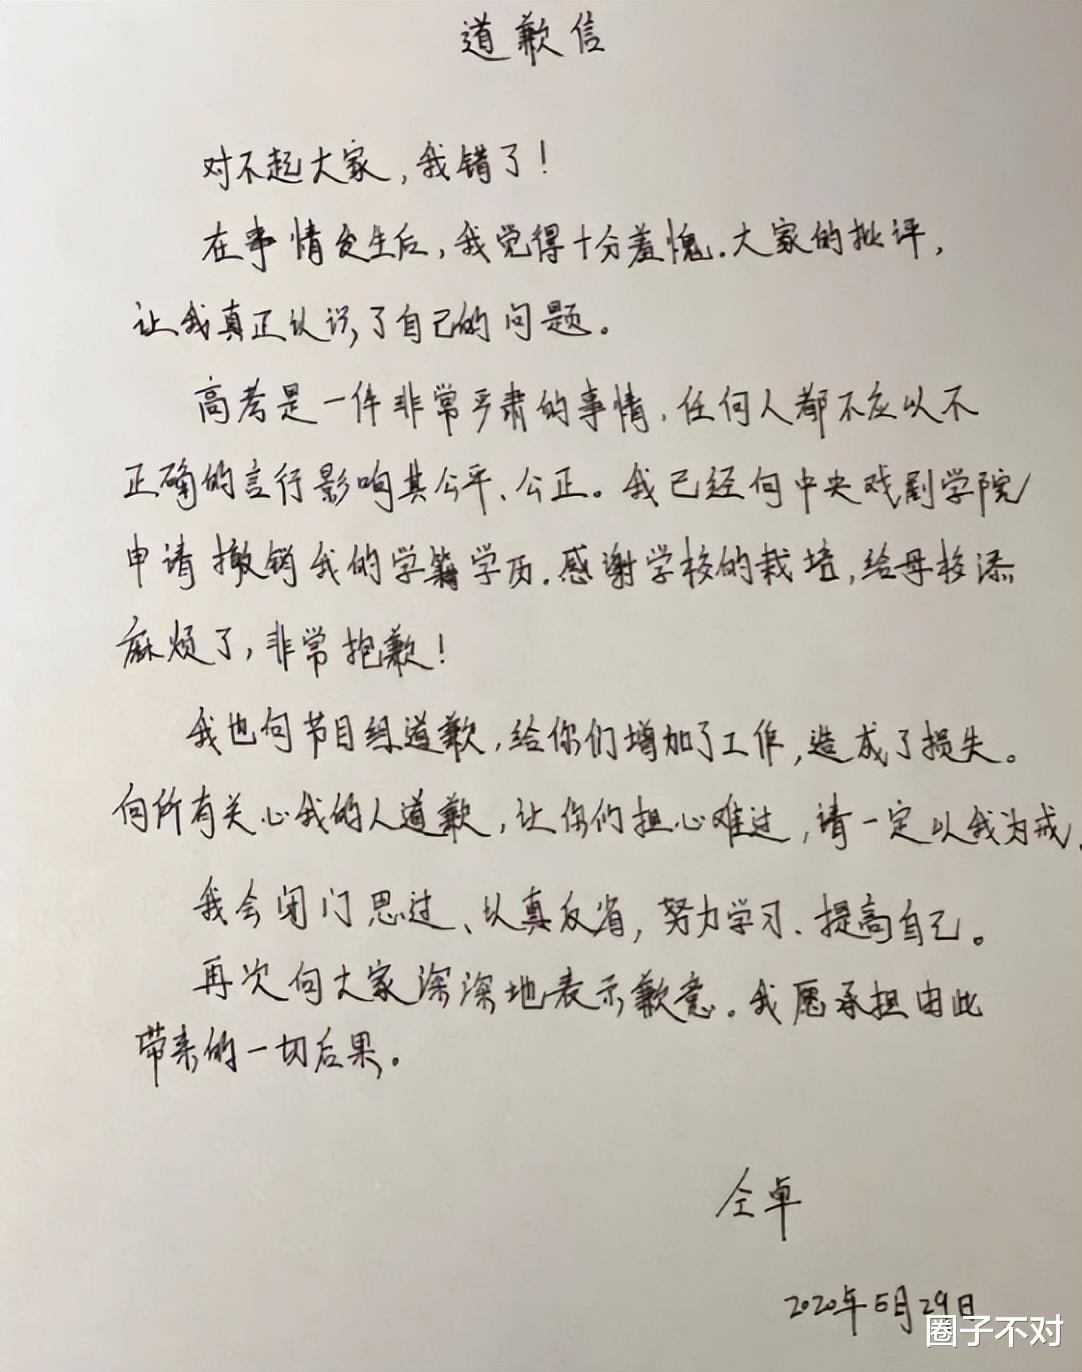 道歉信
对不起大家，我错了！
在事情发生后，我觉得十分羞愧。大家的批评，
让我真正认识了自己的问题。
高考是一件非常严肃的事情，任何人都不应以不
正确的言行影响其公平、公正。我已经向中央戏剧学院
申请撤销我的学籍学历。感谢学校的栽培，给母校添
麻烦了，非常抱歉！
我也向节目组道歉，给你们增加了工作，造成了损失。
向所有关心我的人道歉，让你们担心难过，请一定以我为戒。
我会闭门思过、认真反省，努力学习、提高自己。
再次向大家深深地表示歉意。我愿承担由此
带来的一切后果。
仝卓
2020年5月29日
圈子不对